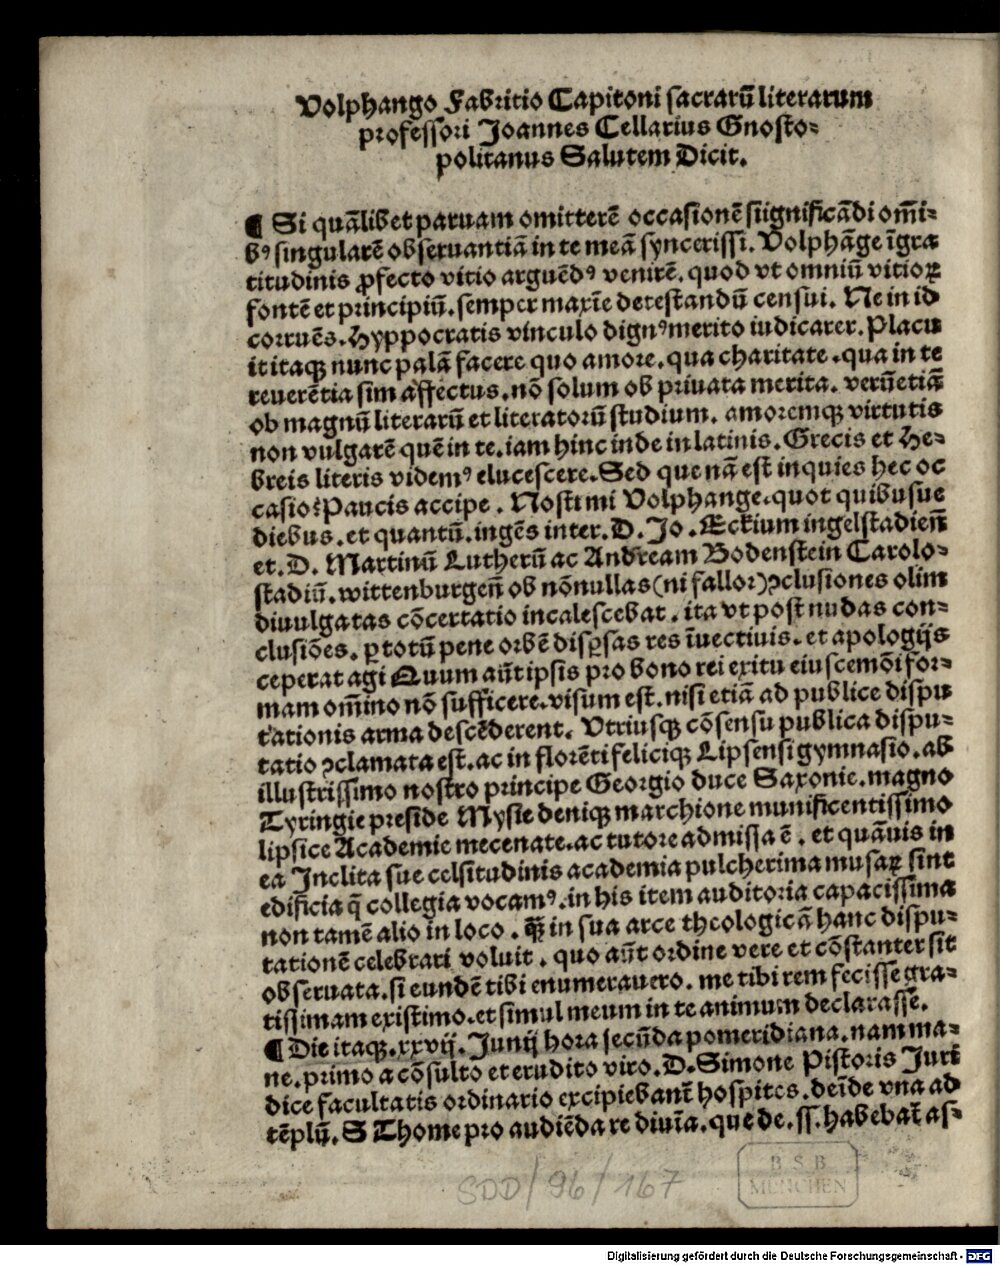 Volphango Fabritio Capitoni sacrarū literarum
professori Joannes Cellarius Gnosto-
politanus Salutem Dicit.
¶ Si quālibet paruam omitterē occasionē siignificādi om̄i-
bꝰ singularē obseruantiā in te meā syncerissi. Volphāge īgra
titudinis ꝓfecto vitio arguēdꝰ venirē. quod vt omniū vitioꝝ
fontē et principiū. semper maxīe detestandū censui. Ne in id
corruēs. Hyppocratis vinculo dignꝰ merito iudicarer. Placu
it itaqꝫ nunc palā facere quo amore. qua charitate. qua in te
reuerētia sim affectus. nō solum ob priuata merita. verūetiā
ob magnū literarū et literatorū studium. amoremqꝫ virtutis
non vulgarē quē in te. iam hinc inde in latinis. Grecis et He-
breis literis videmꝰ elucescere. Sed que nā est inquies hec oc
casio? Paucis accipe. Nosti mi Volphange. quot quibusue
diebus. et quantū. ingēs inter. D. Jo. Eckium ingelstadien̄
et. D. Martinū Lutherū ac Andream Bodenstein Carolo-
stadiū. wittenburgen̄ ob nōnullas (ni fallor) ꝯclusiones olim
diuulgatas cōcertatio incalescebat. ita vt post nudas con-
clusiōes. ꝑ totū pene orbē disꝑsas res īuectiuis. et apologijs
ceperat agi Quum aūt ipsis pro bono rei exitu eiuscemōi for-
mam om̄ino nō sufficere. visum est. nisi etiā ad publice dispu
tationis arma descēderent. Vtriusqꝫ cōsensu publica dispu-
tatio ꝯclamata est. ac in florēti feliciqꝫ Lipsensi gymnasio. ab
illustrissimo nostro principe Georgio duce Saxonie. magno
Tyringie preside Mysie deniqꝫ marchione munificentissimo
lipsice Academie mecenate. ac tutore admissa ē. et quāuis in
ea Inclita sue celsitudinis academia pulcherima musaꝝ sint
edificia q̄ collegia vocamꝰ. in his item auditoria capacissima
non tamē alio in loco. qꝫ̄ in sua arce theologicā hanc dispu-
tationē celebrari voluit. quo aūt ordine vere et cōstanter sit
obseruata. si eundē tibi enumerauero. me tibi rem fecisse gra-
tissimam existimo. et simul meum in te animum declarasse.
¶ Die itaqꝫ. xxvij. Junij hora secūda pomeridiana. nam ma-
ne. primo a cōsulto et erudito viro. D. Simone Pistoris Juri
dice facultatis ordinario excipiebant̄ hospites. deīde vna ad
tēplū. S Thome pro audiēda re diuīa. que de. ss. habebat̄ as-
SDD/96/167
BSB
MÜNCHEN
Digitalisierung gefördert durch die Deutsche Forschungsgemeinschaft - DFG